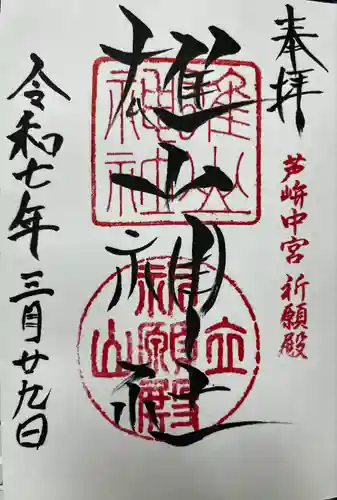 奉拝
芦峅中宮 祈願殿
雄山神社
雄山神社
立山祈願殿
令和七年 三月廿九日